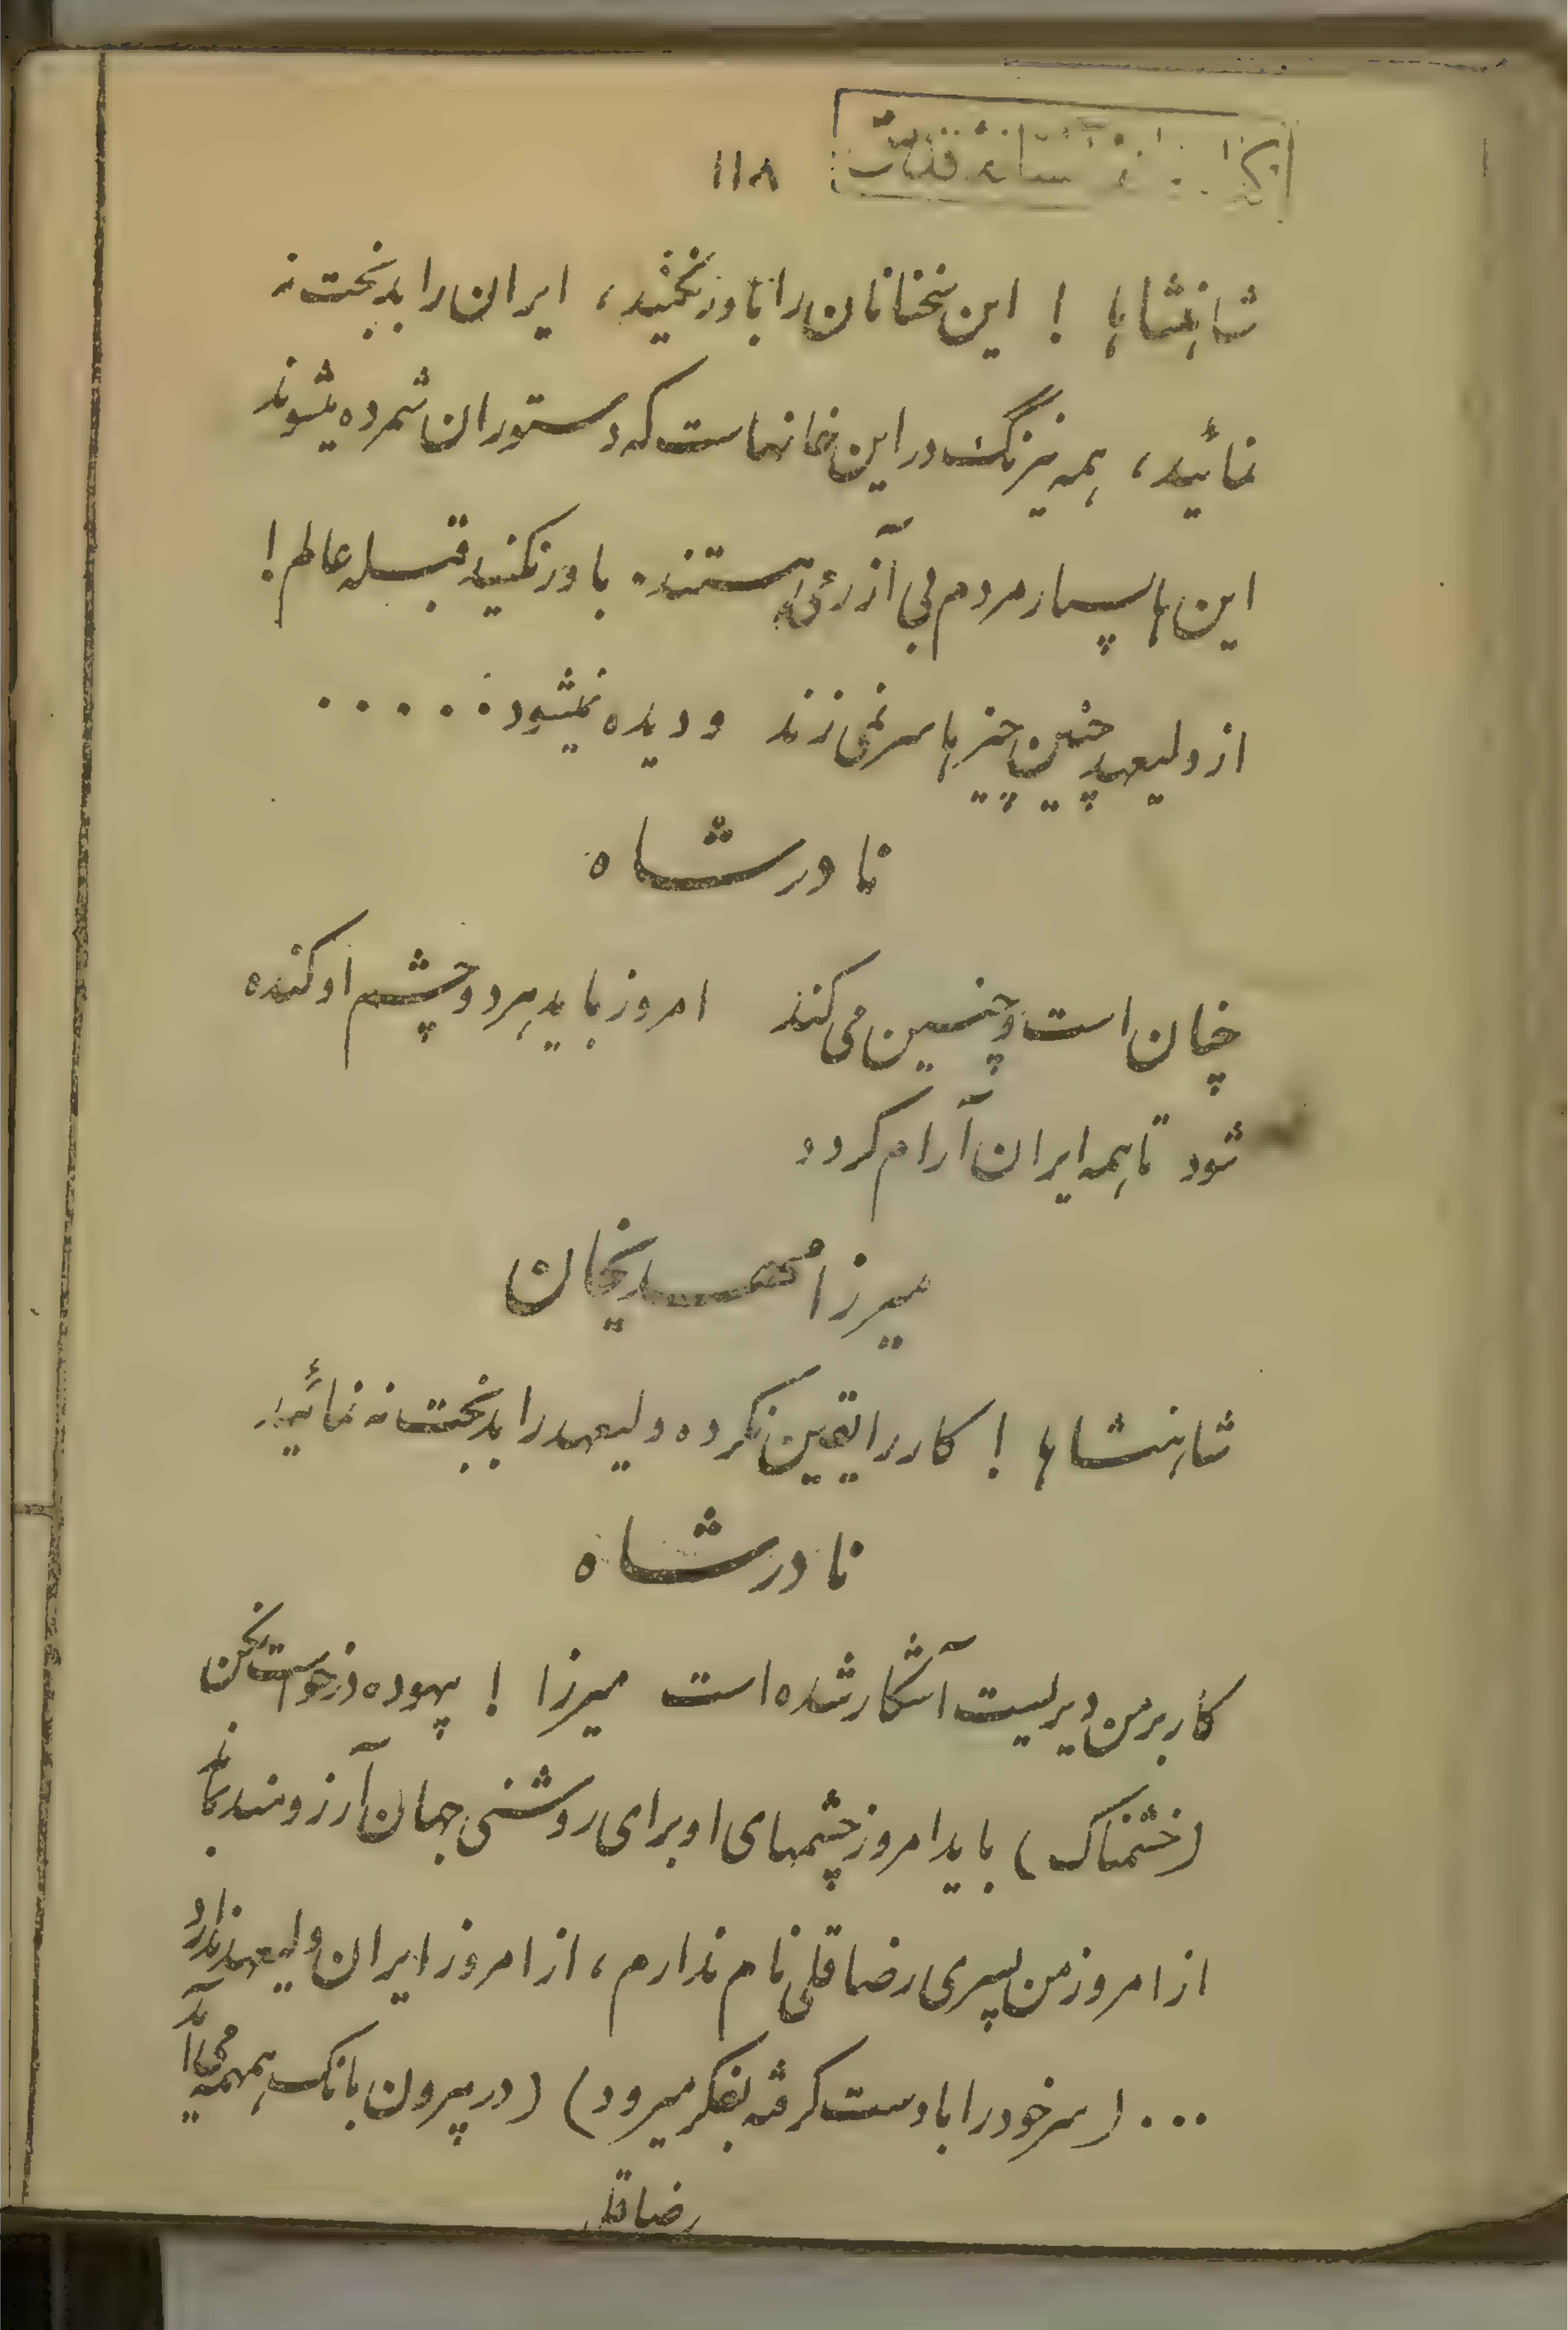 ۱۱۸
شاهنشاها ! این سخنانان را باور نکنید، ایران را بدبخت نه
نمائید، همه نیرنگ در این خانهاست که دستوران شمرده میشوند
این ها بسیار مردم بی آزرمی هستند. باور نکنید قبله عالم!
از ولیعهد چنین چیزها سر نمی زند و دیده نمیشود . . . . . .
نادرشاه
چنان است و چنین می کند امروز باید هر دو چشم او کنده
شود تا همه ایران آرام گردد
میرزا مهدیخان
شاهنشاها ! کار را یقین نکرده ولیعهد را بدبخت نه نمائید
نادرشاه
کار بر من دیریست آشکار شده است میرزا ! بیهوده درخواست نکن
(خشمناک) باید امروز چشمهای او برای روشنی جهان آرزومند بماند
از امروز من پسری رضاقلی نام ندارم، از امروز ایران ولیعهد ندارد
... (سر خود را با دست گرفته بفکر میرود) (در بیرون بانگ همهمه می آید
رضاقلی